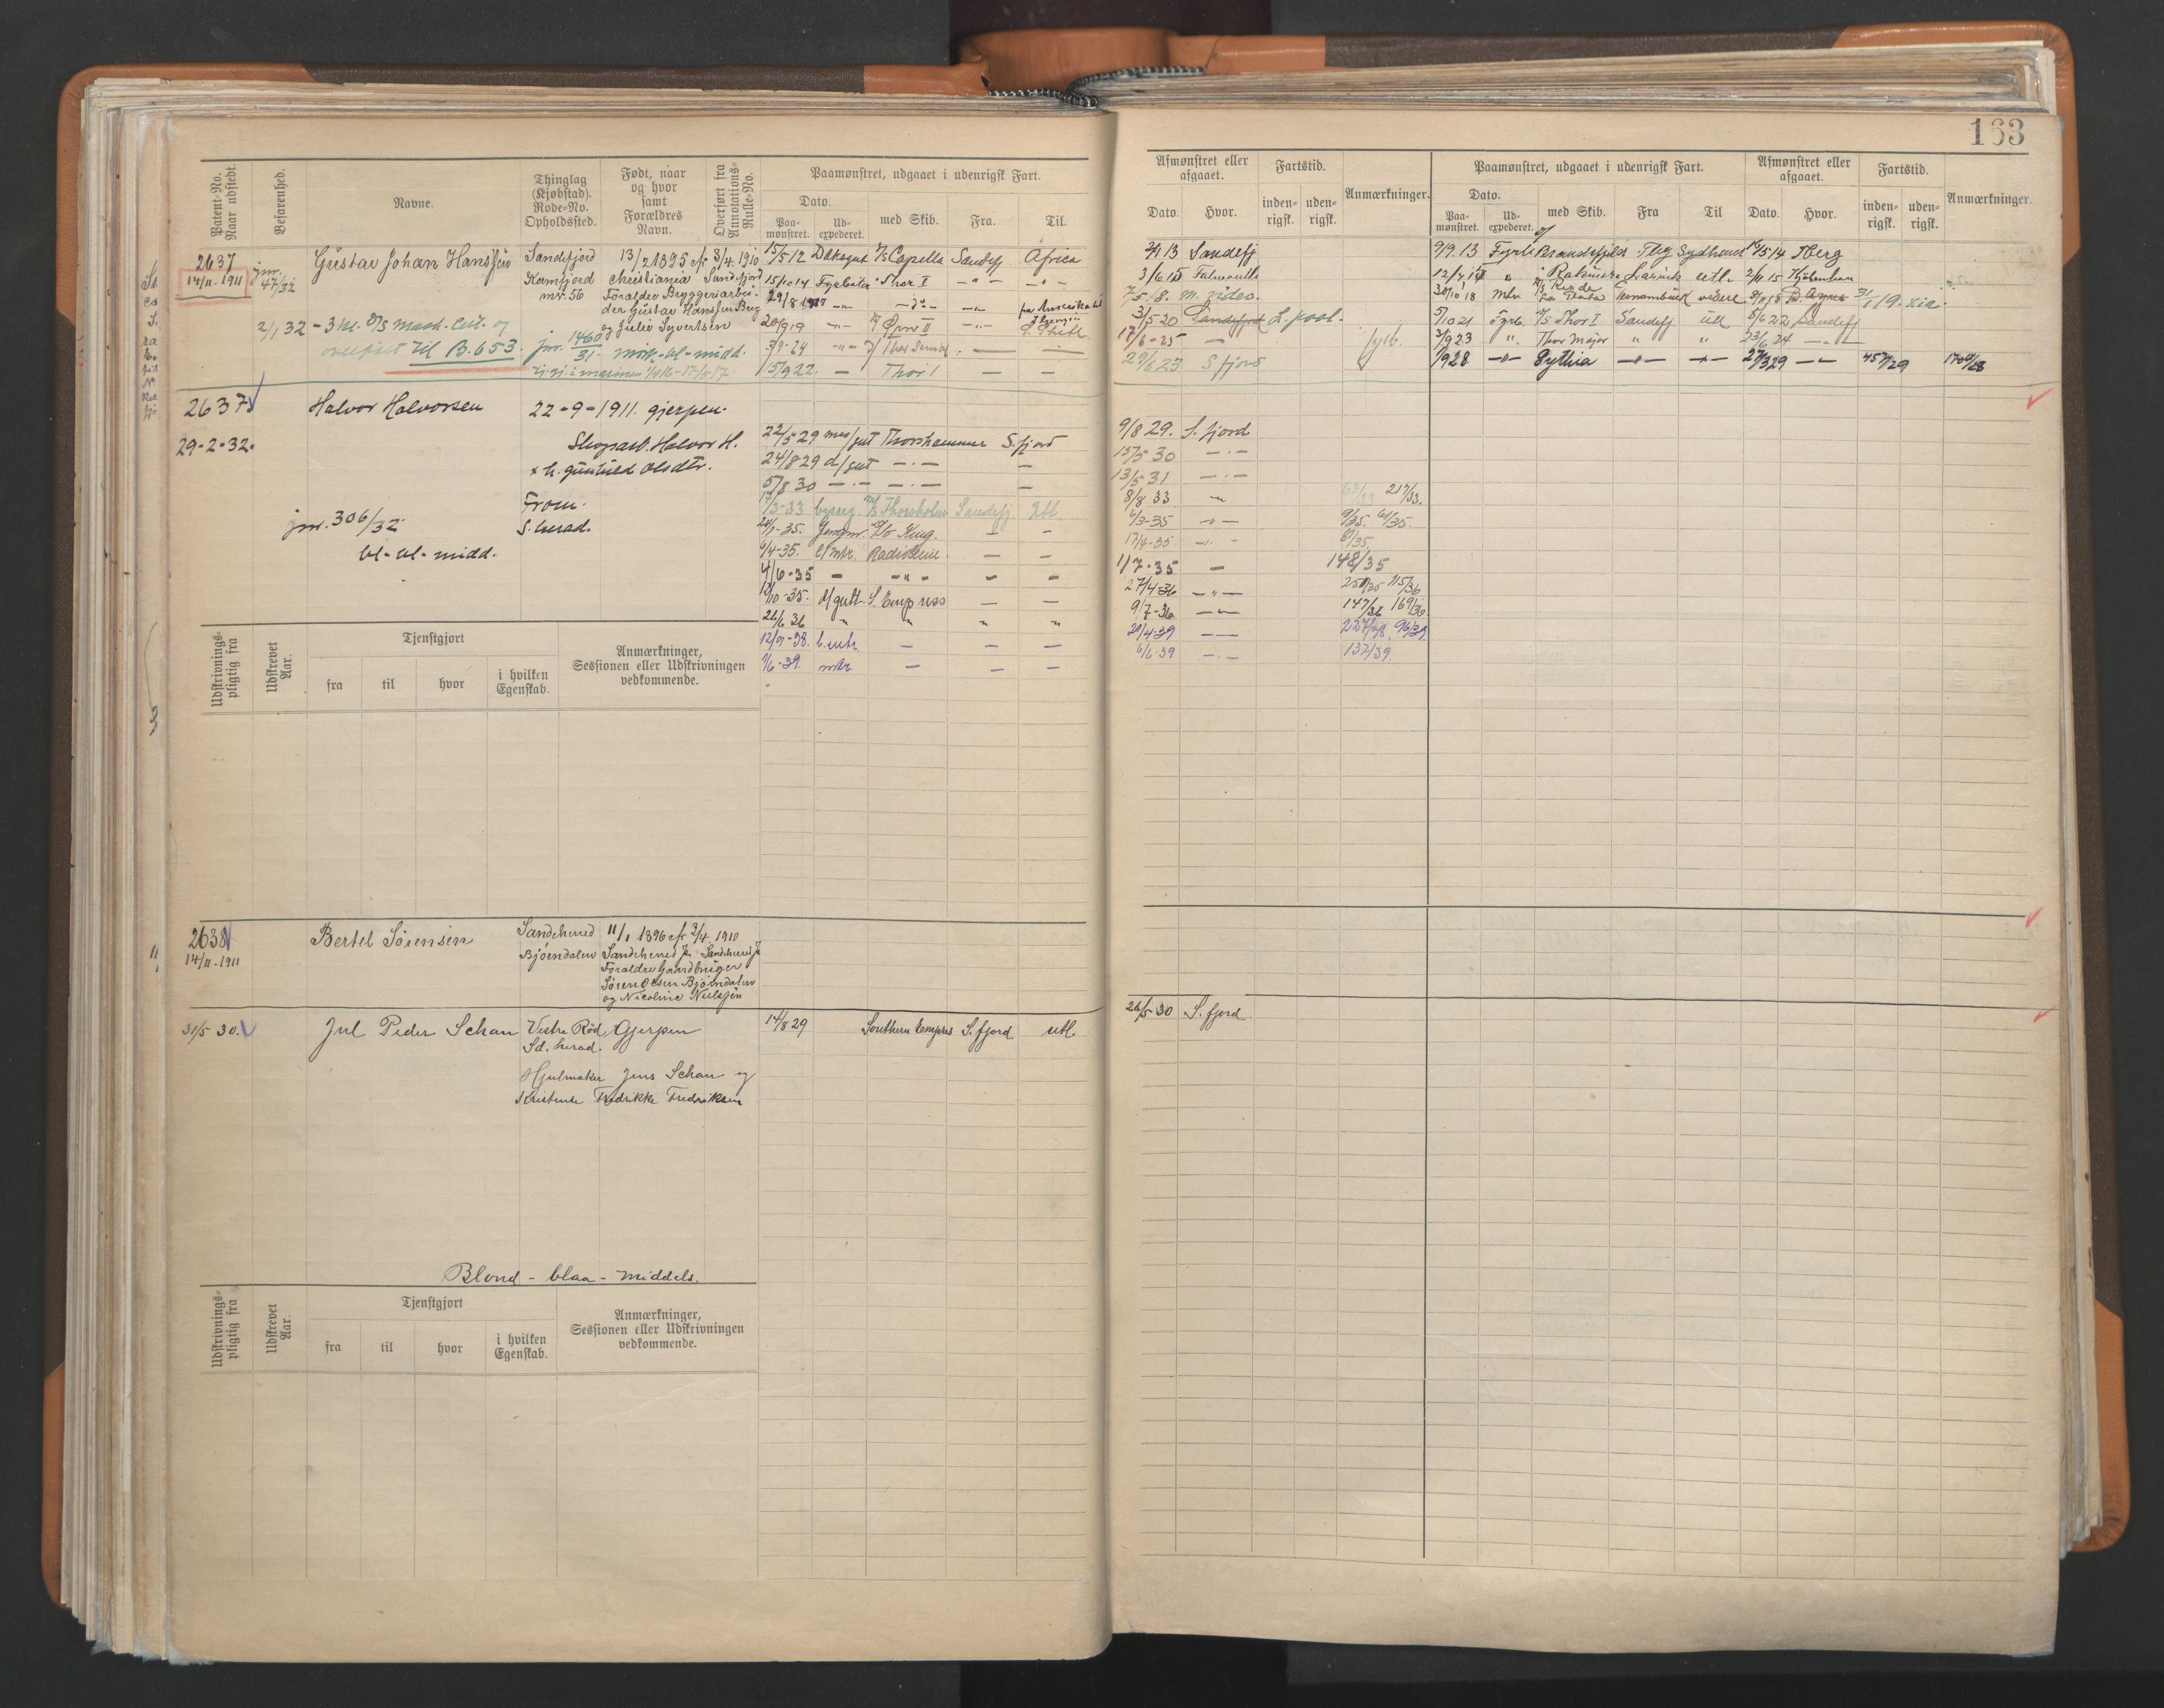 163
Patent-No. Naar udstedt.
Befarenhed.
Navne.
Thinglag (Kjøbstad). Rode-No. Opholdssted.
Født, naar og hvor samt Forældres Navn.
Overført fra Annotations-Rulle-No.
Paamønstret, udgaaet i udenrigsk Fart.
Dato.
Paa-mønstret.
Ud-expederet.
med Skib.
Fra.
Til.
Afmønstret eller afgaaet.
Dato.
Hvor.
Fartstid.
inden-rigsk.
uden-rigsk.
Anmærkninger.
Paamønstret, udgaaet i udenrigsk Fart.
Dato.
Paa-mønstret.
Ud-expederet.
med Skib.
Fra
Til
Afmønstret eller afgaaet.
Dato.
Hvor.
Fartstid.
inden-rigsk.
uden-rigsk.
Anmærkninger.
2637
14/11-1911
jnr. 47/32
Gustav Johan Hanssen
Sandefjord
Kamfjord
mr. 56
13/2 1895 cfr 3/4 1910
Christiania Sandefjord
Forældre Bryggeriarbei-
der Gustav Hanssen Berg
og Julie Syvertsen
2/1 32 - 3 kl.
overført til B. 653.
jnr. 1460/31. mörk-bl-midd.
15/5 12 Dæksgut Capella Sandefj Africa
15/10 14 Fyrbøter Thor I
29/8 1917
20/9 19 Ørn II
3/9-24
15/9 22. — Thor I — —
2/4 13 Sandefj
3/6 15 Falmouth
7/5-18. m. video.
3/5-20 Sandefjord L. pool.
17/6-25 —
29/6 23 S fjord
9/9.13 Fyrb Brandsfjeld Tbg Sydhavet 16/5 14 Tberg
2/11 15 Kjøbenhavn
30/10 18 Mtr Pernambuck videre B. Ayres
5/10 21 Fyrb. Thor I Sandefj utl 5/6 22 Sandefj
3/9 23 " Thor Major " " 23/6 24 — " —
1/9 28 —"— Pythia —"— —"— 27/3 29 —"—
2637
29-2-32.
Halvor Halvorsen
22-9-1911. gjerpen.
Skogsarb. Halvor H.
+ h. Gunhild Olsdtr.
From.
S. herad.
jnr. 306/32
bl-bl-midd.
22/5 29 mes/gut Thorshammer S. fjord
24/8 29 d/gut — . — —
5/8 30 — . — — . — —
17/3-33 bysseg. Thorsholm Sandefj Utl
20/9-35. Jungm. King. — —
6/4-35. l/mtr. Radioleine. — —
4/6-35 — — " — — —
10-35. d/gutt. S. Empress — —
26/6 36 " " " "
12/9-38. l. mtr. — — —
1/6-39. mtr. — — —
9/8 29. S. fjord
15/5 30 — . —
13/5 31 — . —
8/8 33 " 63/33 217/33.
6/3-35 —"— 9/35. 61/35.
17/4-35. — . — 81/35.
1/7-35 — 148/35
27/4-36 —"— 115/36
9/7-36 —"— 147/36 169/36
20/4-39 — — 227/38. 96/39.
6/6-39 — . — 137/39.
Udskrivnings-pligtig fra
Udskrevet Aar.
Tjenstgjort
fra
til
hvor
i hvilken Egenskab.
Anmærkninger, Sessionen eller Udskrivningen vedkommende.
2638
14/11-1911
Bertel Sørensen
Sandeherred
Bjørndalen
11/1 1896 cfr 3/4 1910
Sandeherred Sandeherred
Forældre Gaardbruger
Søren Olsen Bjørndalen
og Nicoline Nielsen
31/5 30.
Jul Peder Schau
Vestre Röd, Gjerpen
Sd. herad.
Hjulmaker Jens Schau og
Kristense Fredrikke Fredriksen
14/8 29 Southern Empress S. fjord utl.
26/5 30 S. fjord
Blond - blaa - middels.
Udskrivnings-pligtig fra
Udskrevet Aar.
Tjenstgjort
fra
til
hvor
i hvilken Egenskab.
Anmærkninger, Sessionen eller Udskrivningen vedkommende.